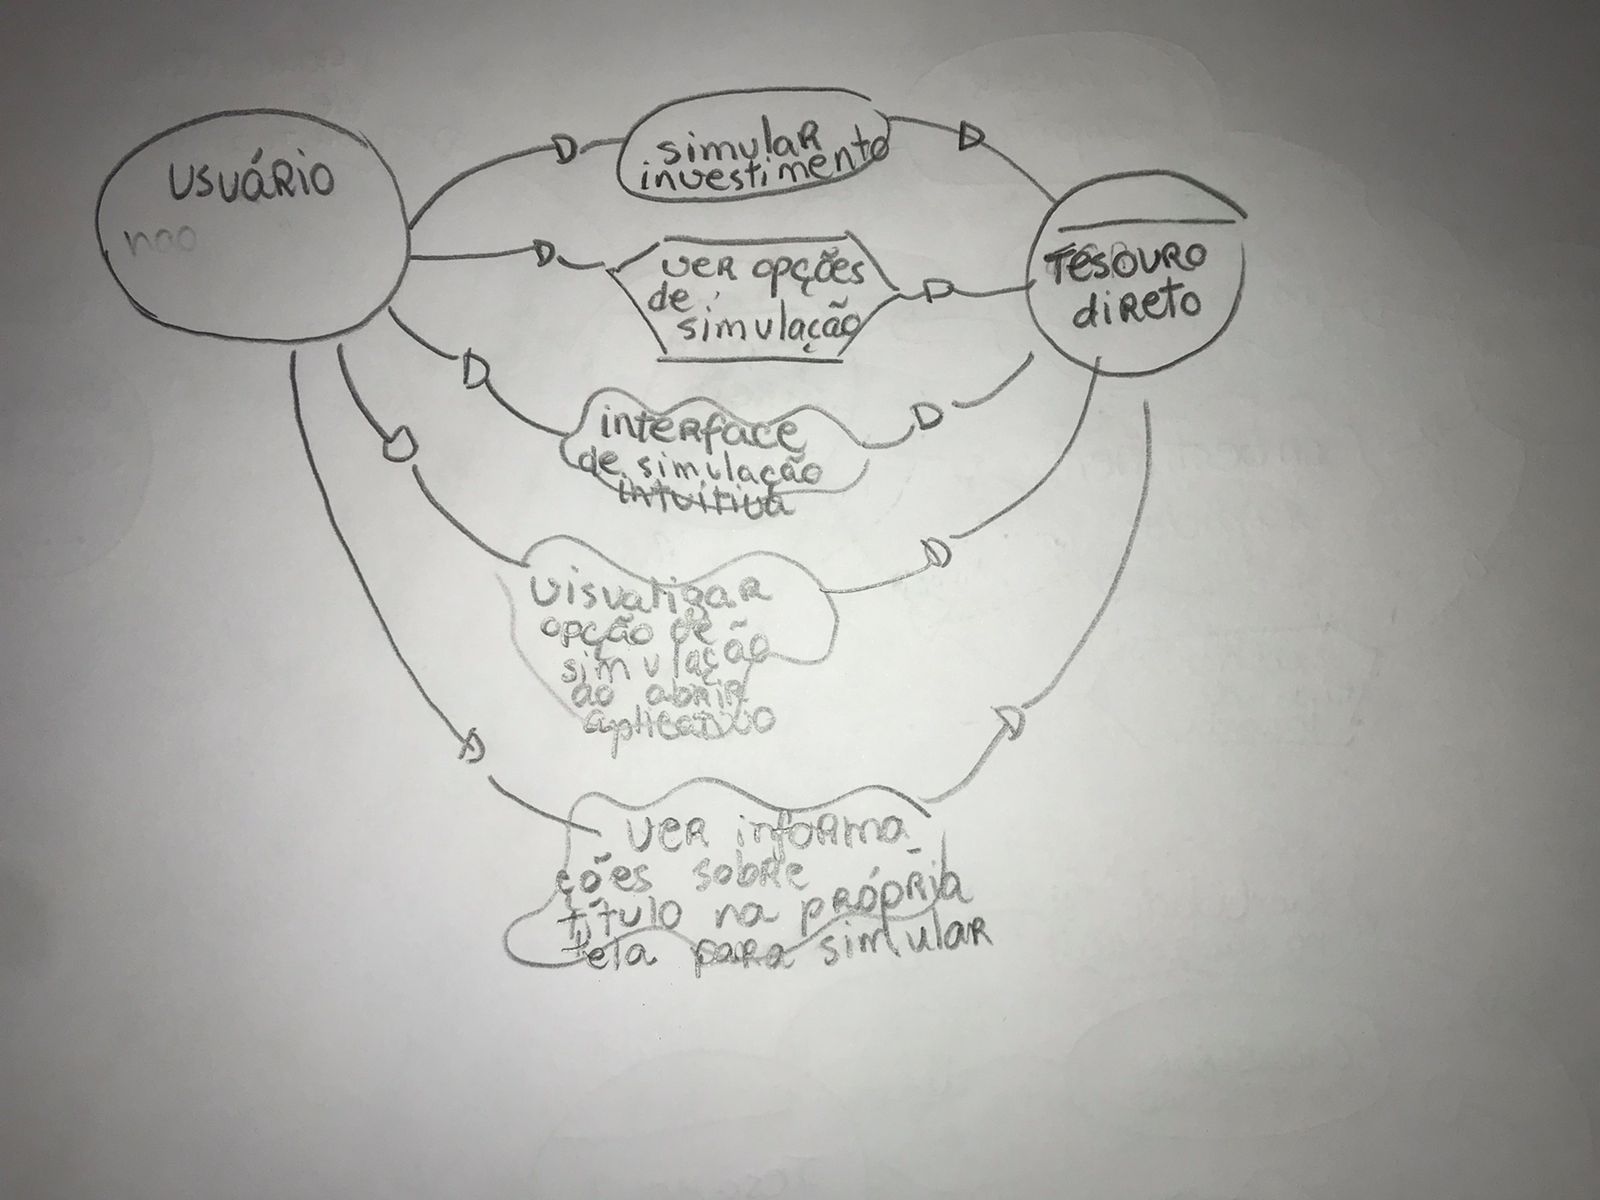 USUÁRIO
nao
simular
investimento
ver opções
de
simulação
Tesouro
direto
interface
de simulação
intuitiva
visualizar
opção de
simulação
ao abrir
aplicativo
ver informa
ções sobre
título na própria
tela para simular